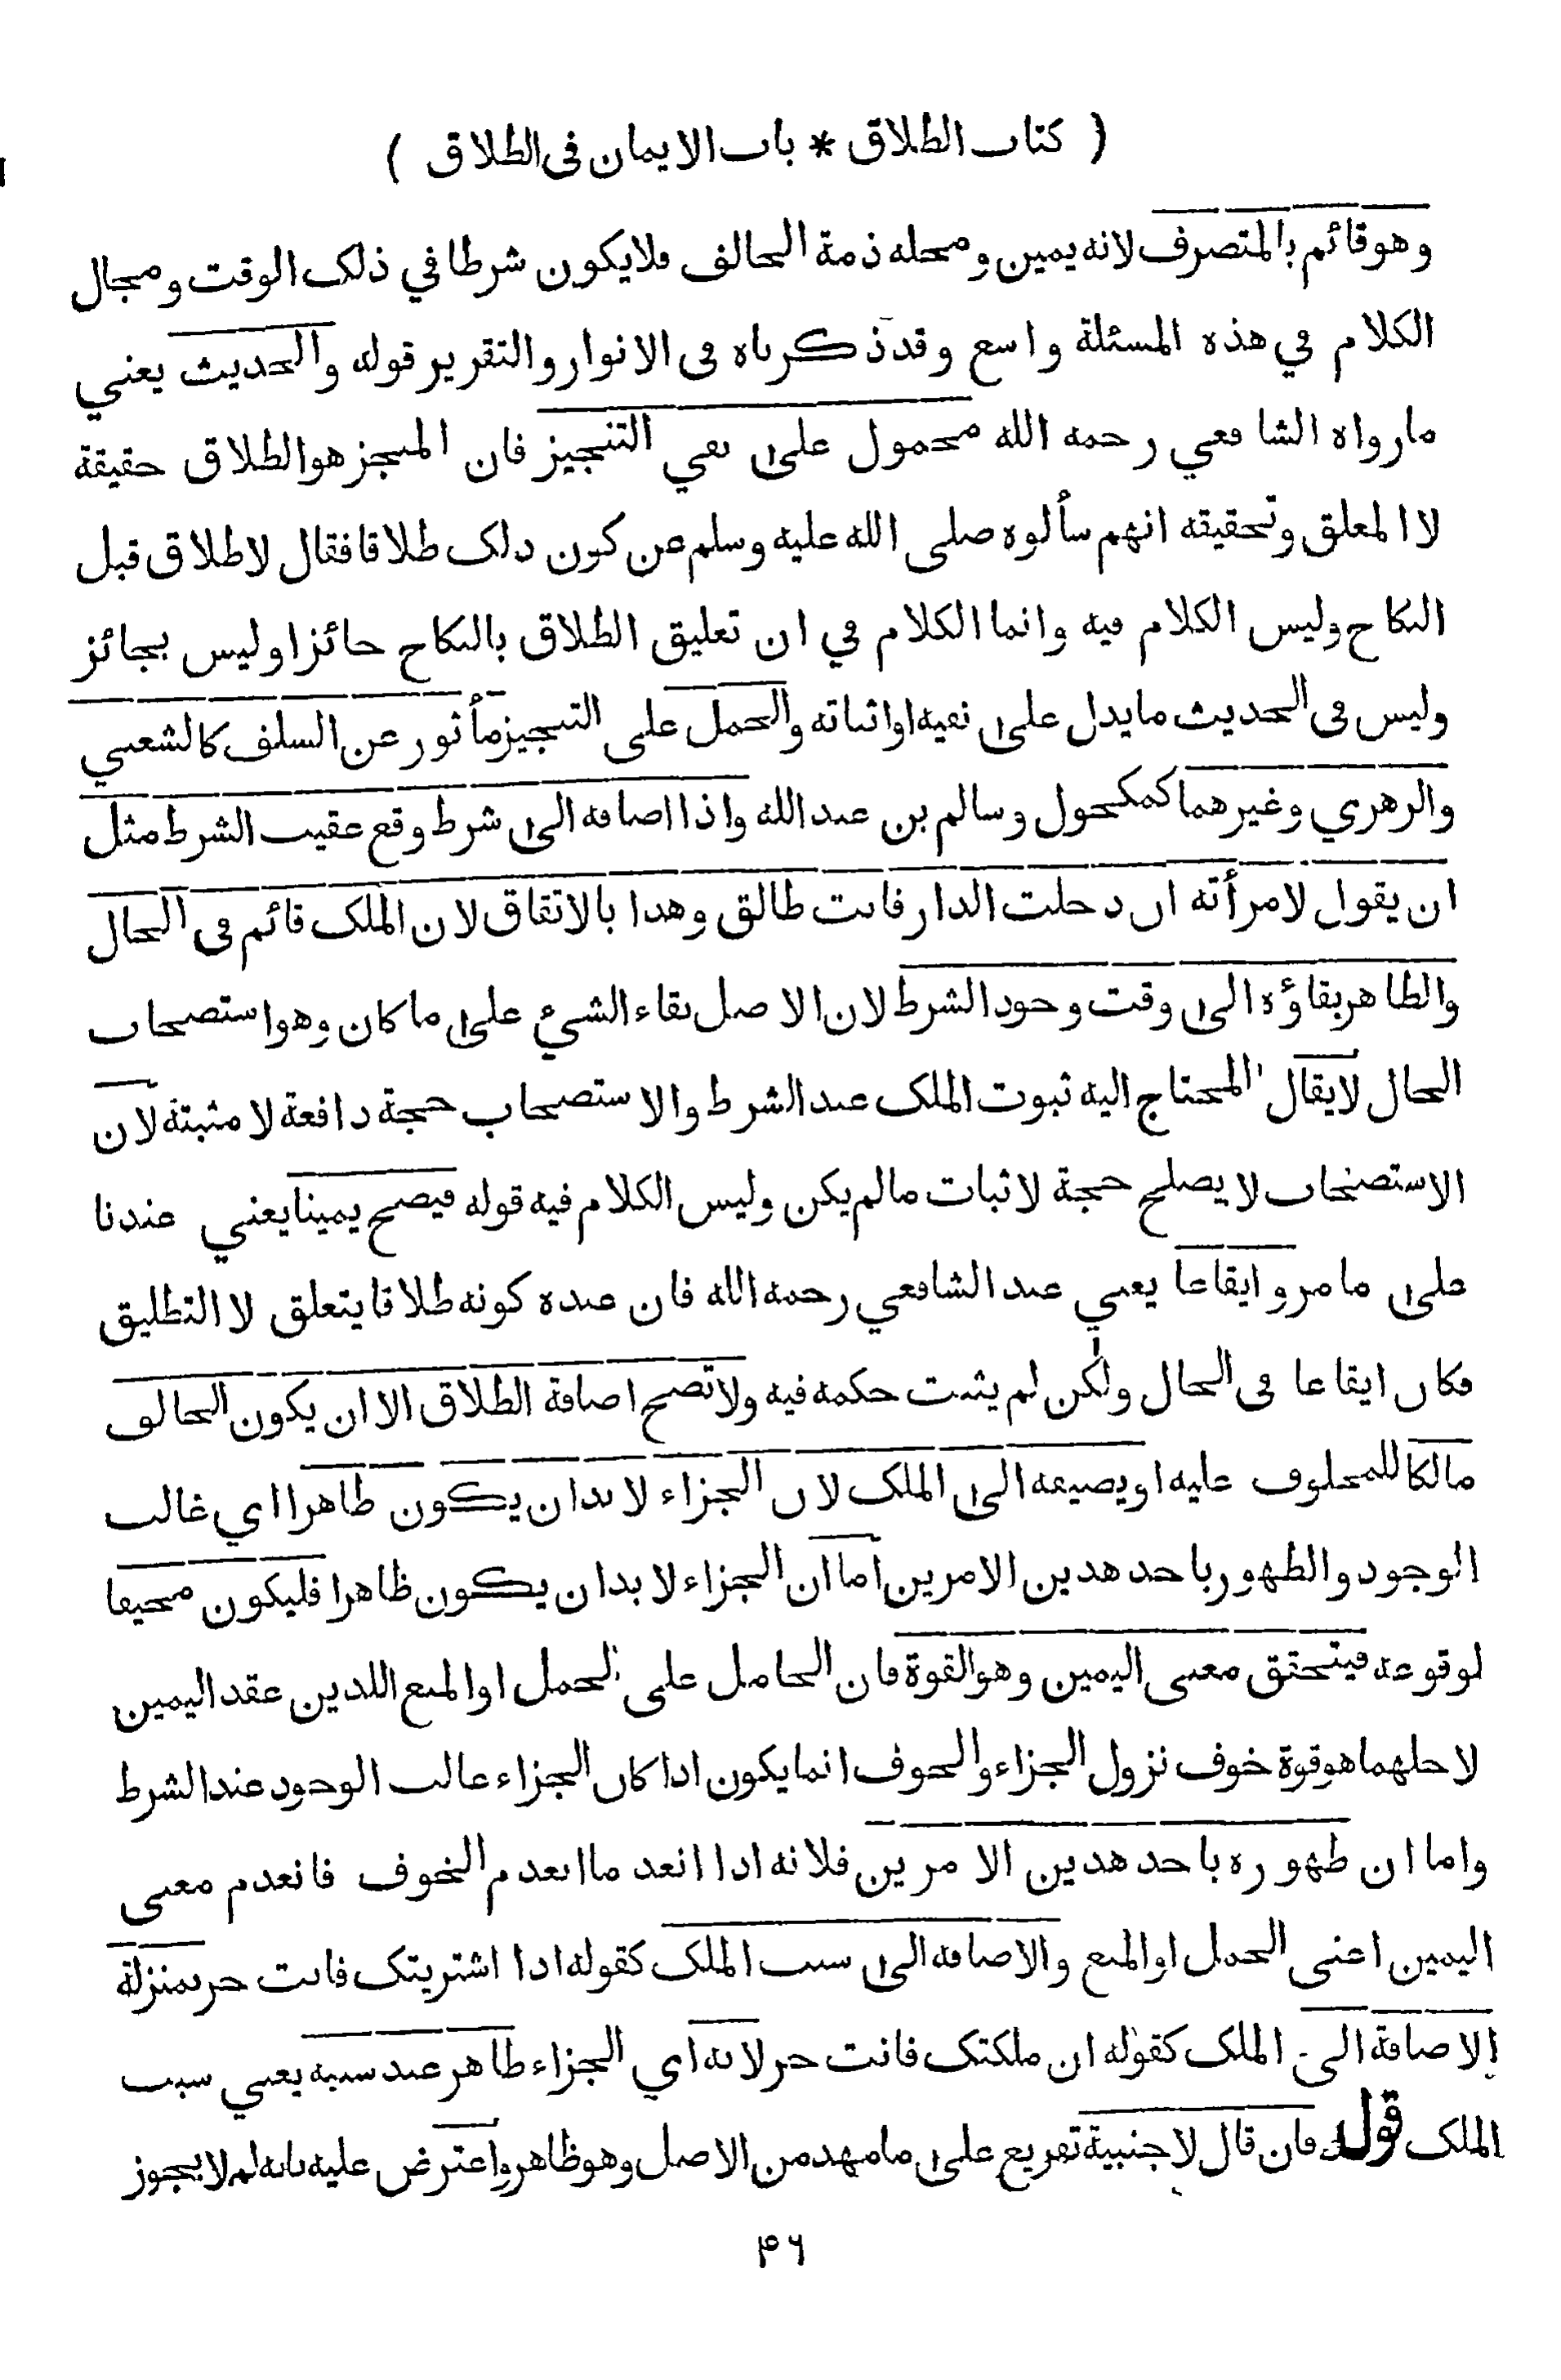 ( كتاب الطلاق * باب الايمان فى الطلاق )
وهو قائم بالمتصرف لانه يمين ومحله ذمة الحالف فلايكون شرطا في ذلك الوقت ومجال
الكلام في هذه المسئلة واسع وقد ذكرناه فى الانوار والتقرير قوله والحديث يعني
مارواه الشافعي رحمه الله محمول على نفي التنجيز فان المنجز هوالطلاق حقيقة
لا المعلق وتحقيقه انهم سألوه صلى الله عليه وسلم عن كون ذلك طلاقا فقال لاطلاق قبل
النكاح وليس الكلام فيه وانما الكلام في ان تعليق الطلاق بالنكاح جائز اوليس بجائز
وليس فى الحديث مايدل على نفيه اواثباته والحمل على التنجيز مأثور عن السلف كالشعبي
والزهري وغيرهما كمكحول وسالم بن عبدالله واذا اضافه الى شرط وقع عقيب الشرط مثل
ان يقول لامرأته ان دخلت الدار فانت طالق وهذا بالاتفاق لان الملك قائم فى الحال
والظاهر بقاؤه الى وقت وجود الشرط لان الاصل بقاء الشيء على ماكان وهو استصحاب
الحال لايقال المحتاج اليه ثبوت الملك عند الشرط والاستصحاب حجة دافعة لا مثبتة لان
الاستصحاب لا يصلح حجة لاثبات مالم يكن وليس الكلام فيه قوله فيصح يمينا يعني عندنا
على مامر وايقاعا يعني عند الشافعي رحمه الله فان عنده كونه طلاقا يتعلق لا التطليق
فكان ايقاعا فى الحال ولكن لم يثبت حكمه فيه ولاتصح اضافة الطلاق الا ان يكون الحالف
مالكا للمحلوف عليه او يضيفه الى الملك لان الجزاء لابد ان يكون ظاهرا اي غالب
الوجود والظهور باحد هذين الامرين اما ان الجزاء لابد ان يكون ظاهرا فليكون مخيفا
لوقوعه فيتحقق معنى اليمين وهو القوة فان الحامل على الحمل اوالمنع اللذين عقد اليمين
لاجلهما هو قوة خوف نزول الجزاء والخوف انمايكون اذا كان الجزاء غالب الوجود عندالشرط
واما ان ظهوره باحد هذين الامرين فلانه اذا انعدما انعدم الخوف فانعدم معنى
اليمين اعنى الحمل اوالمنع والاضافة الى سبب الملك كقوله اذا اشتريتك فانت حر بمنزلة
الاضافة الى الملك كقوله ان ملكتك فانت حر لانه اي الجزاء ظاهر عند سببه يعني سبب
الملك قوله فان قال لاجنبية تفريع على مامهد من الاصل وهو ظاهر واعترض عليه بانه لم لايجوز
۴۶